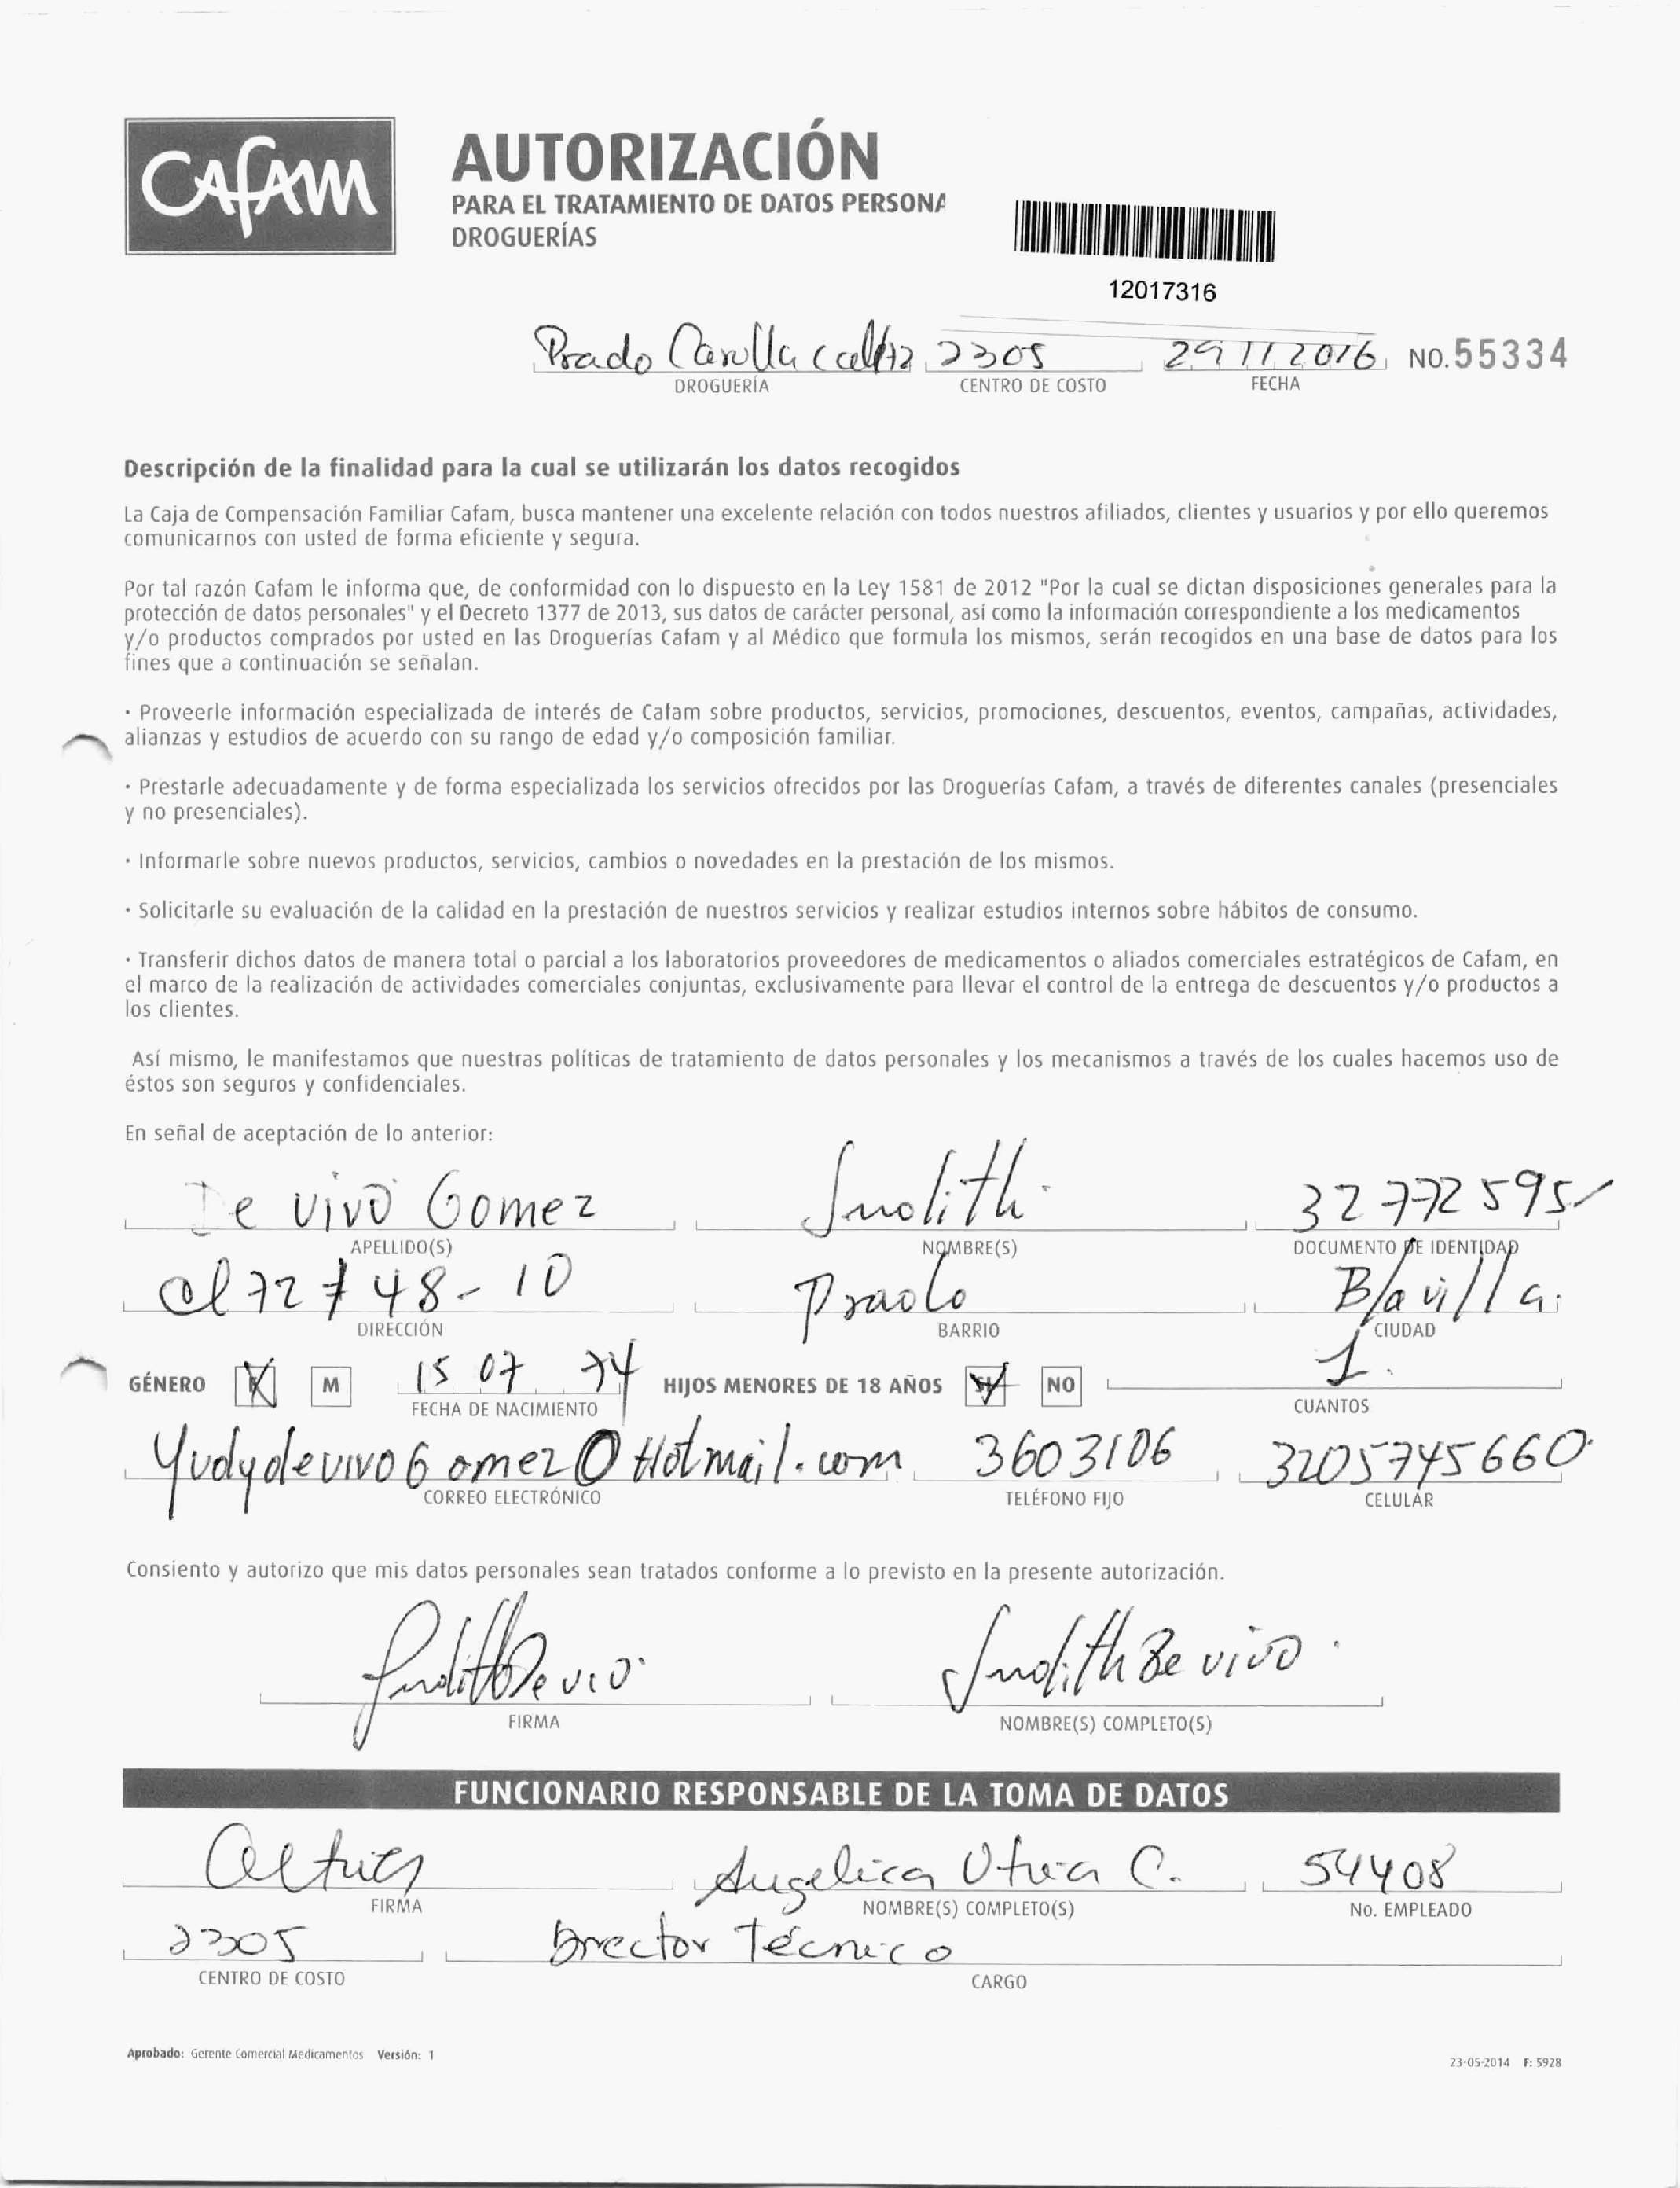 CAFAM
AUTORIZACIÓN
PARA EL TRATAMIENTO DE DATOS PERSONA
DROGUERÍAS
12017316
Prado 2305 29 11 2016 NO.55334
DROGUERÍA CENTRO DE COSTO FECHA
Descripción de la finalidad para la cual se utilizarán los datos recogidos
La Caja de Compensación Familiar Cafam, busca mantener una excelente relación con todos nuestros afiliados, clientes y usuarios y por ello queremos
comunicarnos con usted de forma eficiente y segura.
Por tal razón Cafam le informa que, de conformidad con lo dispuesto en la Ley 1581 de 2012 "Por la cual se dictan disposiciones generales para la
protección de datos personales" y el Decreto 1377 de 2013, sus datos de carácter personal, así como la información correspondiente a los medicamentos
y/o productos comprados por usted en las Droguerías Cafam y al Médico que formula los mismos, serán recogidos en una base de datos para los
fines que a continuación se señalan.
· Proveerle información especializada de interés de Cafam sobre productos, servicios, promociones, descuentos, eventos, campañas, actividades,
alianzas y estudios de acuerdo con su rango de edad y/o composición familiar.
· Prestarle adecuadamente y de forma especializada los servicios ofrecidos por las Droguerías Cafam, a través de diferentes canales (presenciales
y no presenciales).
· Informarle sobre nuevos productos, servicios, cambios o novedades en la prestación de los mismos.
· Solicitarle su evaluación de la calidad en la prestación de nuestros servicios y realizar estudios internos sobre hábitos de consumo.
· Transferir dichos datos de manera total o parcial a los laboratorios proveedores de medicamentos o aliados comerciales estratégicos de Cafam, en
el marco de la realización de actividades comerciales conjuntas, exclusivamente para llevar el control de la entrega de descuentos y/o productos a
los clientes.
Así mismo, le manifestamos que nuestras políticas de tratamiento de datos personales y los mecanismos a través de los cuales hacemos uso de
éstos son seguros y confidenciales.
En señal de aceptación de lo anterior:
De vivo Gomez Judith 32772595
APELLIDO(S) NOMBRE(S) DOCUMENTO DE IDENTIDAD
cl 72 # 48-10 Prado B/quilla.
DIRECCIÓN BARRIO CIUDAD
GÉNERO F M 15 07 74 HIJOS MENORES DE 18 AÑOS SI NO 1.
FECHA DE NACIMIENTO CUANTOS
YudydevivoGomez@Hotmail.com 3603106 3205745660
CORREO ELECTRÓNICO TELÉFONO FIJO CELULAR
Consiento y autorizo que mis datos personales sean tratados conforme a lo previsto en la presente autorización.
Judith De vivo Judith De vivo
FIRMA NOMBRE(S) COMPLETO(S)
FUNCIONARIO RESPONSABLE DE LA TOMA DE DATOS
Angelica Utria C. 54408
FIRMA NOMBRE(S) COMPLETO(S) No. EMPLEADO
2305 Director Técnico
CENTRO DE COSTO CARGO
Aprobado: Gerente Comercial Medicamentos Versión: 1
23-05-2014 F: 5928